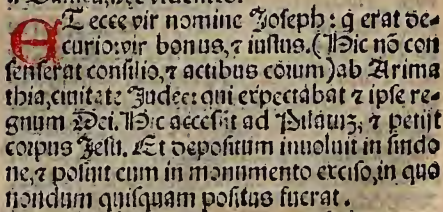 ET ecce vir nomine Joseph: q̄ erat de-
curio: vir bonus, ⁊ iustus. (Hic nō con
senserat consilio, ⁊ actibus eōrum) ab Arima
thia, ciuitate Judee: qui expectabat ⁊ ipse re-
gnum Dei. Hic accessit ad Pilatuꝫ, ⁊ petijt
corpus Jesu. Et depositum inuoluit in sindo
ne, ⁊ posuit eum in monumento exciso, in quo
nondum quisquam positus fuerat.